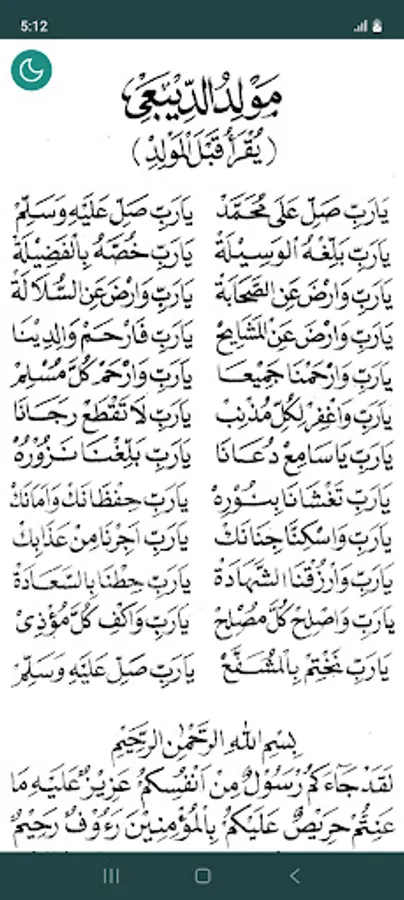 5:12
مَوْلِدُ الدِّيْبَعِيْ
(يُقْرَأُ قَبْلَ الْمَوْلِدِ)
يَارَبِّ صَلِّ عَلَى مُحَمَّدْ يَارَبِّ صَلِّ عَلَيْهِ وَسَلِّمْ
يَارَبِّ بَلِّغْهُ الْوَسِيْلَةْ يَارَبِّ خُصَّهُ بِالْفَضِيْلَةْ
يَارَبِّ وَارْضَ عَنِ الصَّحَابَةْ يَارَبِّ وَارْضَ عَنِ السُّلَالَةْ
يَارَبِّ وَارْضَ عَنِ الْمَشَايِخْ يَارَبِّ فَارْحَمْ وَالِدِيْنَا
يَارَبِّ وَارْحَمْنَا جَمِيْعًا يَارَبِّ وَارْحَمْ كُلَّ مُسْلِمْ
يَارَبِّ وَاغْفِرْ لِكُلِّ مُذْنِبْ يَارَبِّ لَا تَقْطَعْ رَجَانَا
يَارَبِّ يَاسَامِعْ دُعَانَا يَارَبِّ بَلِّغْنَا نَزُوْرُهْ
يَارَبِّ تَغْشَانَا بِنُوْرِهْ يَارَبِّ حِفْظَانَكْ وَامَانَكْ
يَارَبِّ وَاسْكِنَّا جِنَانَكْ يَارَبِّ اَجِرْنَا مِنْ عَذَابِكْ
يَارَبِّ وَارْزُقْنَا الشَّهَادَةْ يَارَبِّ حِطْنَا بِالسَّعَادَةْ
يَارَبِّ وَاصْلِحْ كُلَّ مُصْلِحْ يَارَبِّ وَاكْفِ كُلَّ مُؤْذِيْ
يَارَبِّ نَخْتِمْ بِالْمُشَفَّعْ يَارَبِّ صَلِّ عَلَيْهِ وَسَلِّمْ
بِسْمِ اللهِ الرَّحْمٰنِ الرَّحِيْمِ
لَقَدْ جَاءَكُمْ رَسُوْلٌ مِنْ اَنْفُسِكُمْ عَزِيْزٌ عَلَيْهِ مَا
عَنِتُّمْ حَرِيْصٌ عَلَيْكُمْ بِالْمُؤْمِنِيْنَ رَءُوْفٌ رَحِيْمٌ